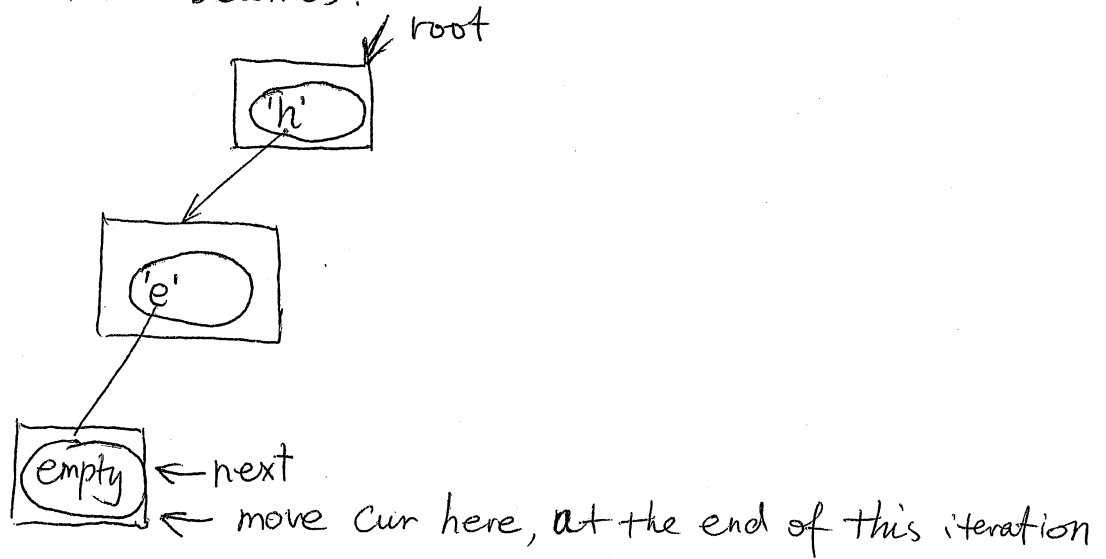 root
'h'
'e'
empty
next
move cur here, at the end of this iteration